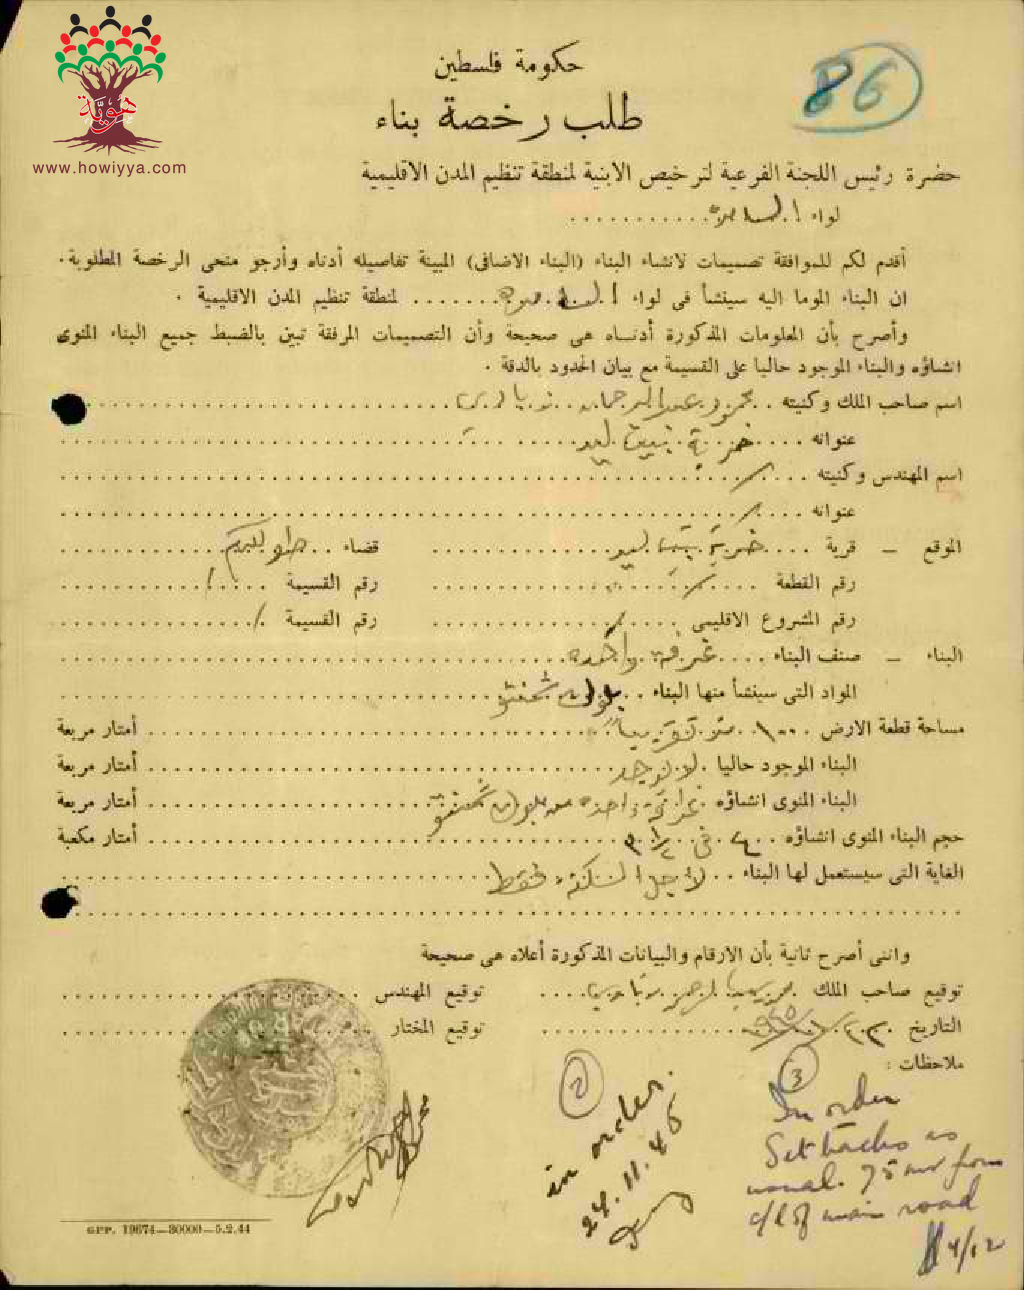 هوية
www.howiyya.com
86
حكومة فلسطين
طلب رخصة بناء
حضرة رئيس اللجنة الفرعية لترخيص الابنية لمنطقة تنظيم المدن الاقليمية
لواء السامرة
أقدم لكم للموافقة تصميمات لانشاء البناء (البناء الاضافى) المبينة تفاصيله أدناه وأرجو منحى الرخصة المطلوبة.
ان البناء الموما اليه سينشأ فى لواء السامرة لمنطقة تنظيم المدن الاقليمية .
وأصرح بأن المعلومات المذكورة أدناه هى صحيحة وأن التصميمات المرفقة تبين بالضبط جميع البناء المنوى
انشاؤه والبناء الموجود حاليا على القسيمة مع بيان الحدود بالدقة .
اسم صاحب الملك وكنيته محمود عبد الرحمن
عنوانه خربة بيت ليد
اسم المهندس وكنيته /
عنوانه /
الموقع – قرية خربة بيت ليد قضاء طولكرم
رقم القطعة / رقم القسيمة /
رقم المشروع الاقليمى / رقم القسيمة /
البناء – صنف البناء غرفة واحده
المواد التى سينشأ منها البناء بلوك شمنتو
مساحة قطعة الارض ١٠٠٠ متر تقريباً أمتار مربعة
البناء الموجود حاليا لا يوجد أمتار مربعة
البناء المنوى انشاؤه غرفة واحده من بلوك شمنتو أمتار مربعة
حجم البناء المنوى انشاؤه ٤ فى ٣ ١/٢ أمتار مكعبة
الغاية التى سيستعمل لها البناء لاجل السكنة فقط
واننى أصرح ثانية بأن الارقام والبيانات المذكورة أعلاه هى صحيحة
توقيع صاحب الملك توقيع المهندس
التاريخ توقيع المختار
ملاحظات :
2
in order.
24.11.45
3
In order
Set backs as
usual. 75 m from
c/l of main road
4/12
GPP. 19674—30000—5.2.44